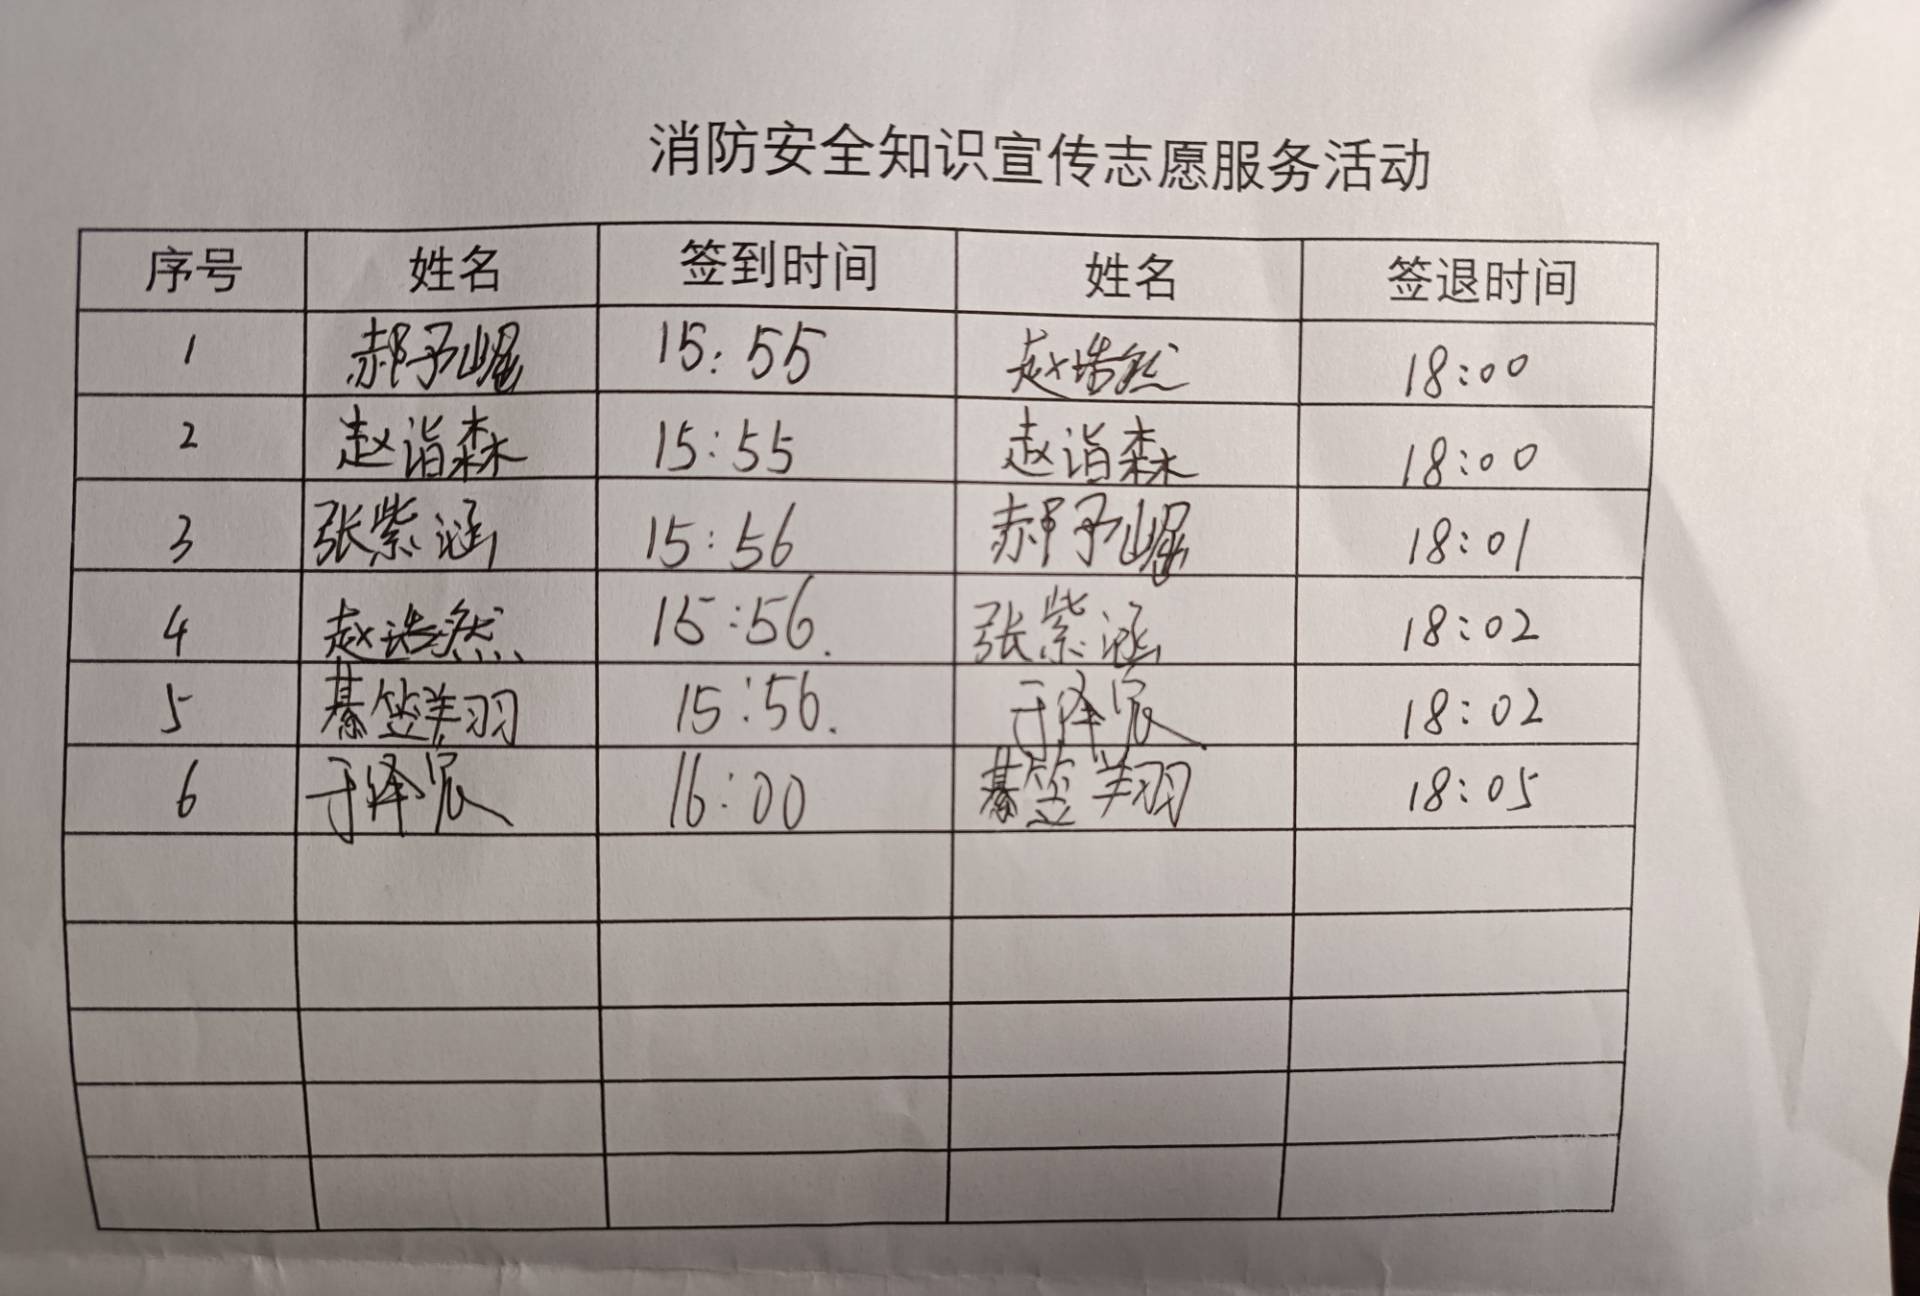 消防安全知识宣传志愿服务活动
序号 姓名 签到时间 姓名 签退时间
1 郝予崛 15:55 赵浩然 18:00
2 赵诣森 15:55 赵诣森 18:00
3 张紫涵 15:56 郝予崛 18:01
4 赵浩然 15:56. 张紫涵 18:02
5 綦笠翔 15:56. 于泽宸 18:02
6 于泽宸 16:00 綦笠翔 18:05